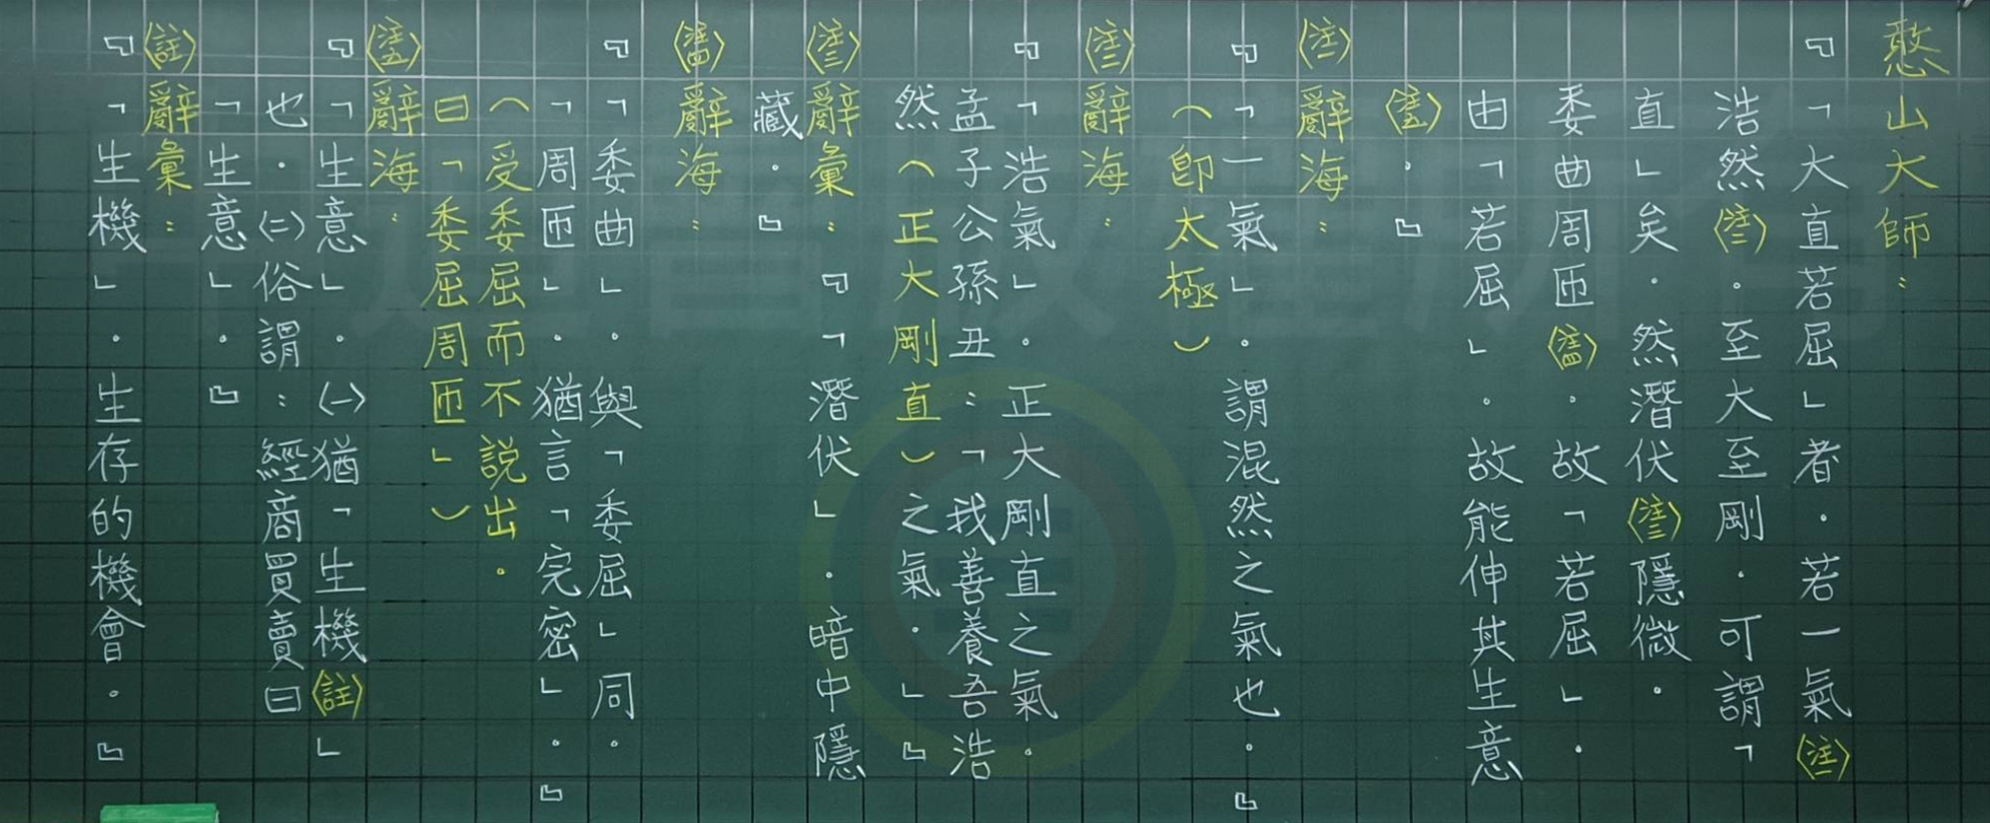 憨山大師：
『「大直若屈」者．若一氣（注一）
浩然（注二）。至大至剛．可謂「
直」矣．然潛伏（注三）隱微．
委曲周匝（注四）．故「若屈」．
由「若屈」．故能伸其生意
（注五）．』
（注一）辭海：
『「一氣」．謂混然之氣也．』
（即太極）
（注二）辭海：
『「浩氣」．正大剛直之氣．
孟子公孫丑：「我善養吾浩
然（正大剛直）之氣．」』
（注三）辭彙：『「潛伏」．暗中隱
藏．』
（注四）辭海：
『「委曲」．與「委屈」同．
「周匝」．猶言「完密」．』
（受委屈而不說出．
曰「委屈周匝」）
（注五）辭海：
『「生意」．㈠猶「生機（註）」
也．㈡俗謂：經商買賣曰
「生意」．』
（註）辭彙：
『「生機」．生存的機會．』